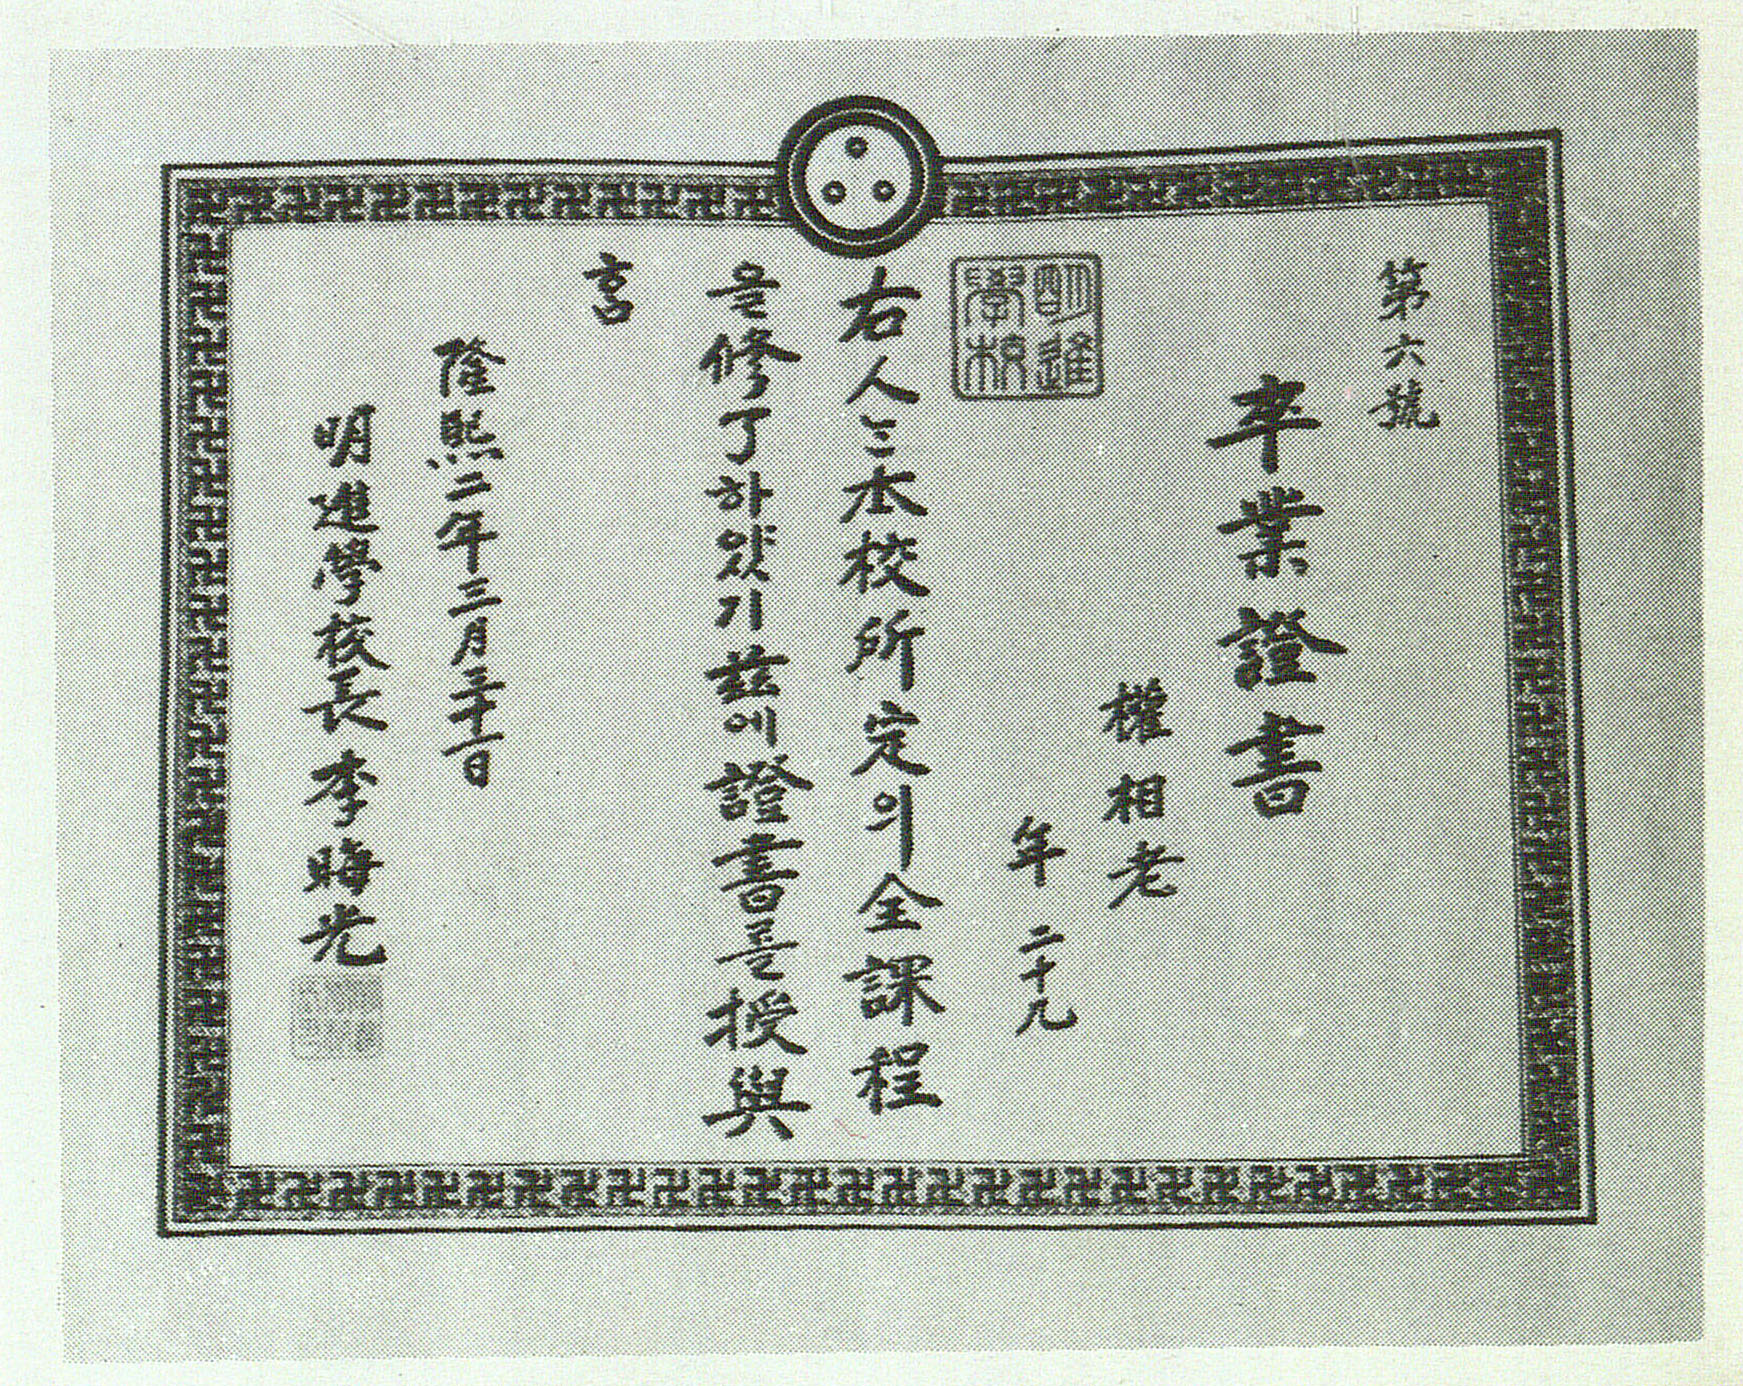 第六號
卒業證書
權相老
年 二十九
明進
學校
右人는本校所定의全課程
을修了하얐기玆에證書를授與
홈
隆熙二年三月三十一日
明進學校長 李晦光